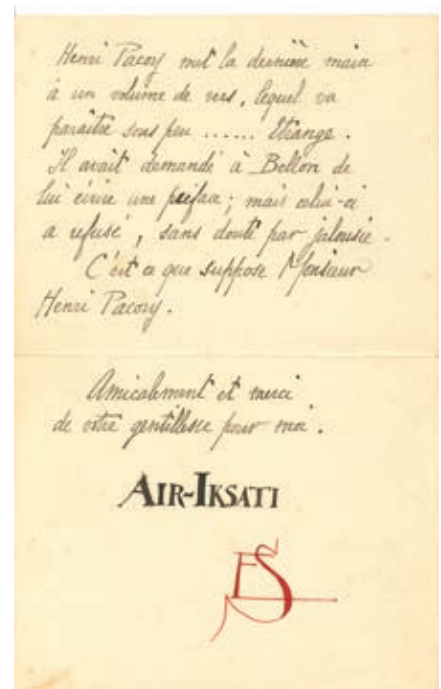 Henri Pacory met la dernière main
à un volume de vers, lequel va
paraître sous peu ...... Etrange.
Il avait demandé à Bellon de
lui écrire une préface ; mais celui-ci
a refusé, sans doute par jalousie.
C'est ce que suppose Monsieur
Henri Pacory.
Amicalement et merci
de votre gentillesse pour moi.
AIR-IKSATI
ES